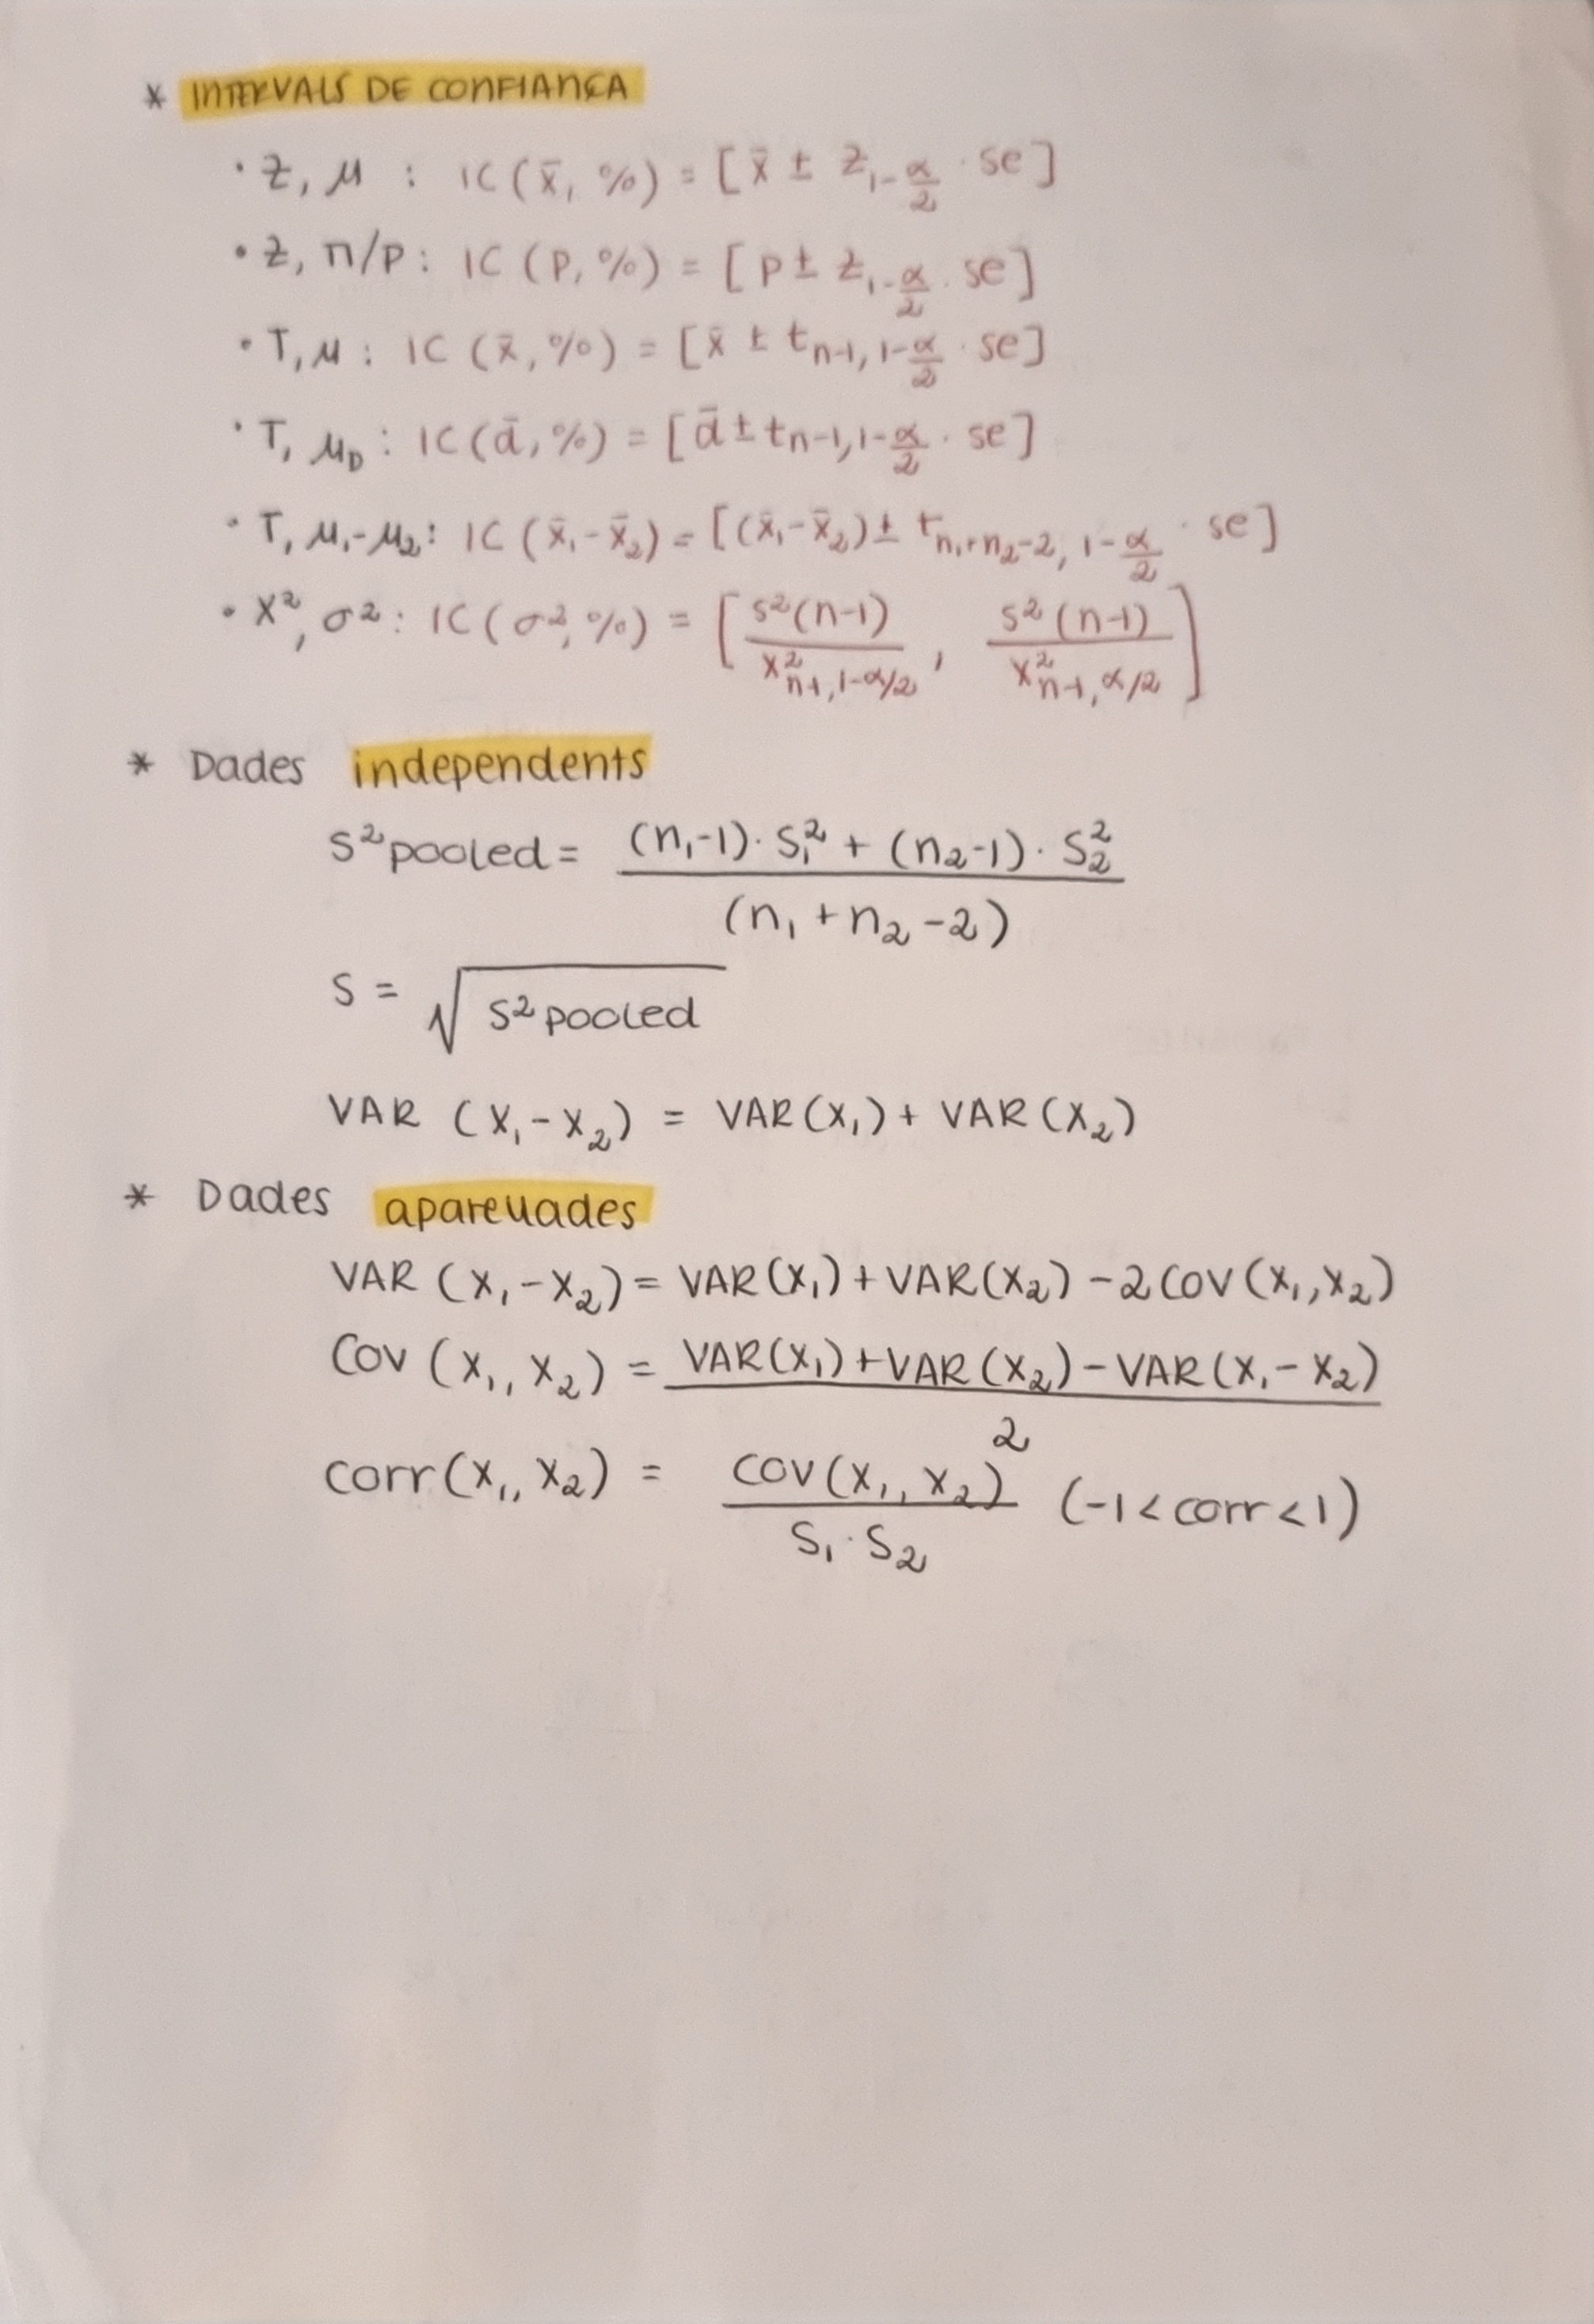 * INTERVALS DE CONFIANÇA
· Z, μ : IC (x̄, %) = [x̄ ± Z_{1-α/2} · se]
· Z, π/P : IC (P, %) = [P ± Z_{1-α/2} · se]
· T, μ : IC (x̄, %) = [x̄ ± t_{n-1, 1-α/2} · se]
· T, μ_D : IC (d̄, %) = [d̄ ± t_{n-1, 1-α/2} · se]
· T, μ₁-μ₂ : IC (x̄₁-x̄₂) = [(x̄₁-x̄₂) ± t_{n₁+n₂-2, 1-α/2} · se]
· X², σ² : IC (σ², %) = [s²(n-1) / X²_{n-1, 1-α/2} , s²(n-1) / X²_{n-1, α/2}]
* Dades independents
S²pooled = (n₁-1) · S₁² + (n₂-1) · S₂² / (n₁+n₂-2)
S = √S²pooled
VAR (X₁-X₂) = VAR(X₁) + VAR(X₂)
* Dades aparellades
VAR (X₁-X₂) = VAR(X₁) + VAR(X₂) - 2COV(X₁, X₂)
COV (X₁, X₂) = VAR(X₁) + VAR(X₂) - VAR(X₁-X₂) / 2
corr(X₁, X₂) = COV(X₁, X₂) / S₁ · S₂ (-1 < corr < 1)